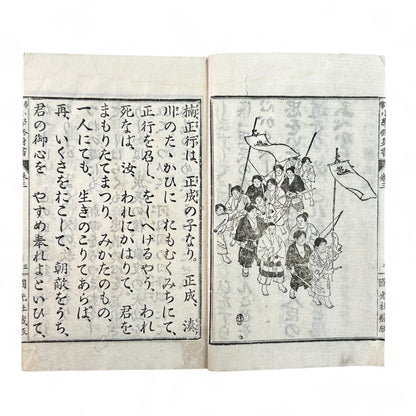 國光社蔵版
楠正行は、正成の子なり。正成、湊
川のたゝかひに おもむくみちにて、
正行を召し、をしへけるやう、われ
死なば、汝、われにかはりて、君を
まもりたてまつり、みかたのもの、
一人にても、生きのこりてあらば、
再、いくさをおこして、朝敵をうち、
君の御心を やすめ奉れよといひて、
國光社蔵版